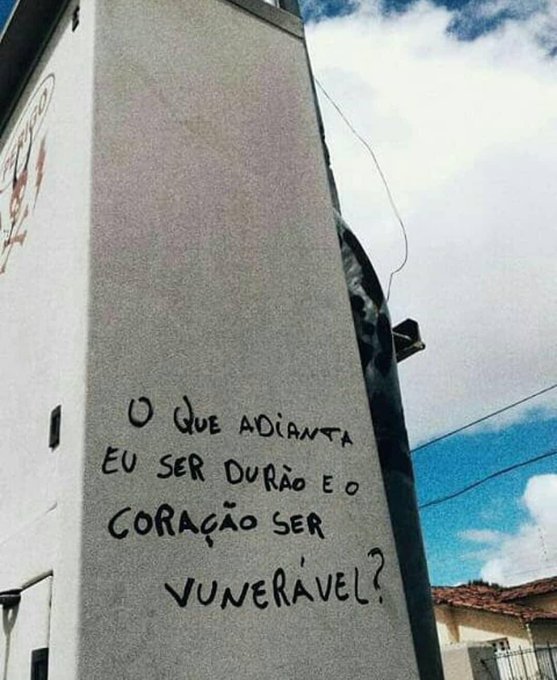 PERIGO
O QUE ADIANTA
EU SER DURÃO E O
CORAÇÃO SER
VUNERÁVEL?